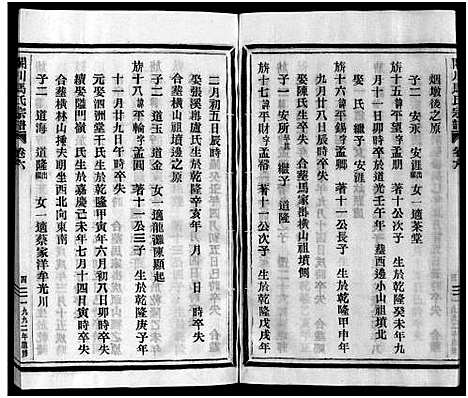 烟墩後之原
子二 安永 安涯 女一適茶堂
旂十一 諱平 孟 著十公次子 生於乾隆癸未年九
月十一日卯時卒於道光壬午年 葬西邊小山祖墳北
娶 氏 繼子 安涯
旂十六 諱平錫 孟鄉 著十一公長子 生於乾隆甲申年
八月廿八日辰時卒失
娶陳氏生卒失 合葬馬家衕橫山祖墳側
子一 安所 繼子一 道隆
旂十七 諱平財 孟帶 著十一公次子 生於乾隆戊戌年
二月初五日辰時卒失
娶張溪冉盧氏生於乾隆辛亥年 月 日 時卒失
合葬橫山祖墳邊之原
子二 道玉 道金 女一適龍灘陳顯起
旂十八 諱平 孟圓 著十一公三子 生於乾隆庚子年
十一月廿九日午時卒失
元娶泗洲堂王氏生於乾隆甲寅年六月初八日卯時卒失
繼娶隘門嶺 氏生於嘉慶己未年七月十四日寅時卒失
合葬橫林山捶夫朋坐西北向東南
子二 道海 道隆繼出 女一適蔡家洋牟光川
開川馬氏宗譜 卷六
四 一九九二年重修